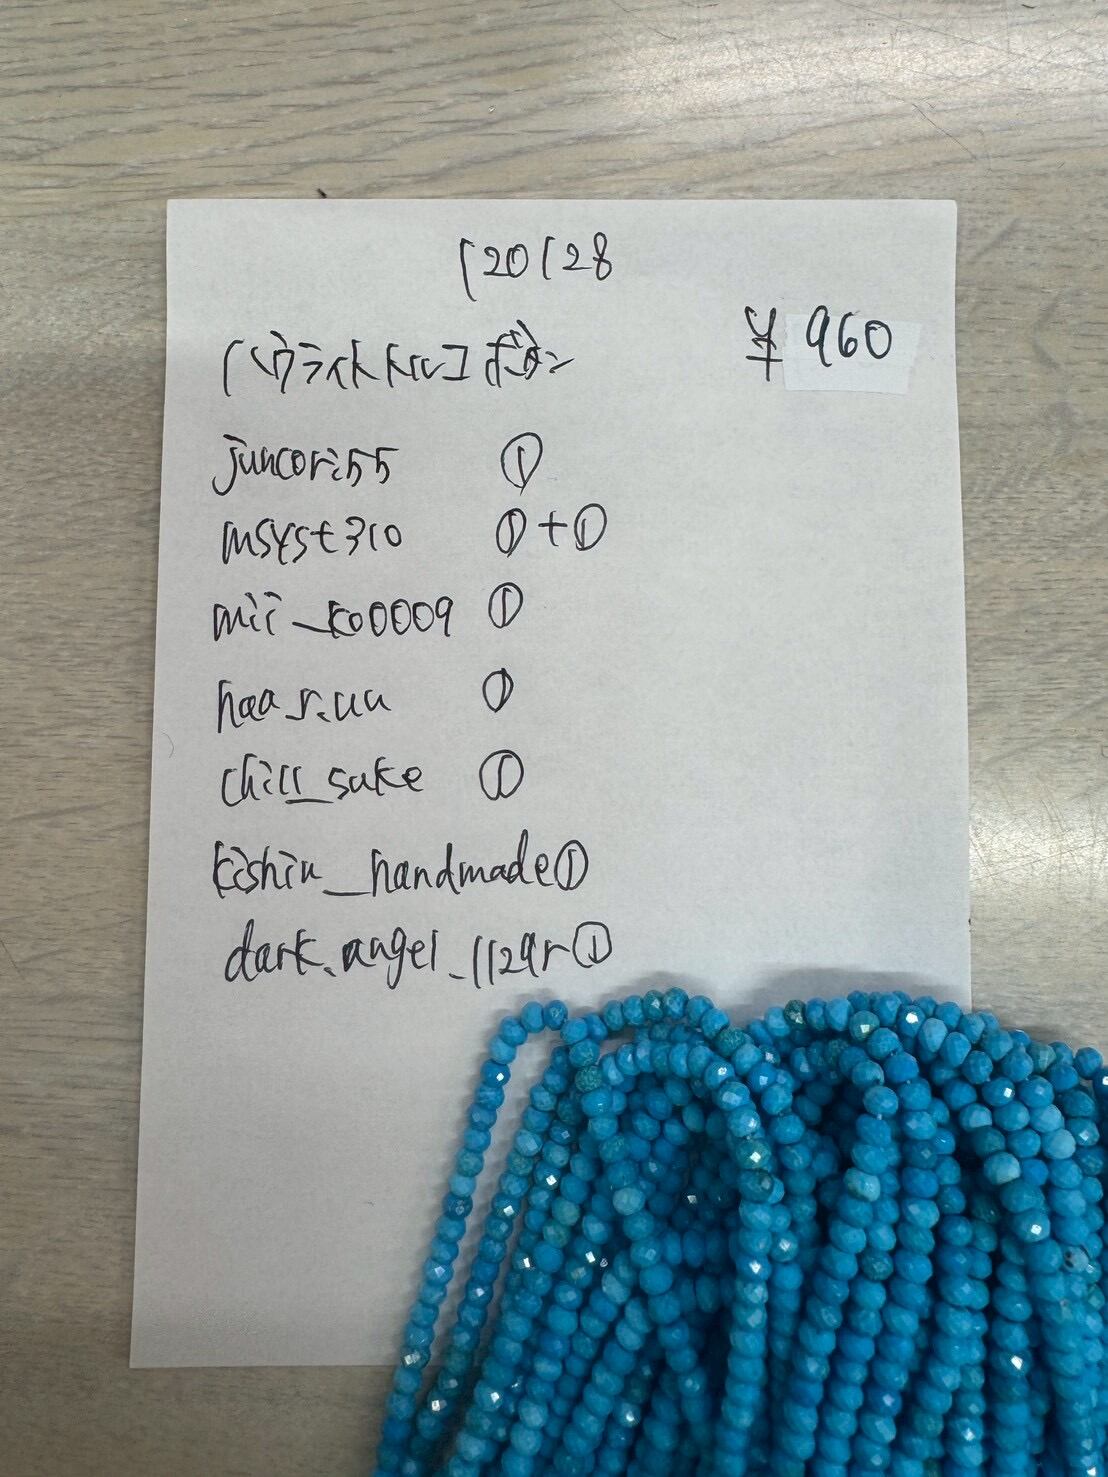 120128
ハウライトトルコ ボタン
¥960
juncori55 ①
msyst310 ①+①
mii_ko0009 ①
haa_r.uu ①
chill_sake ①
kishiu__handmade ①
dark.angel_1129r ①